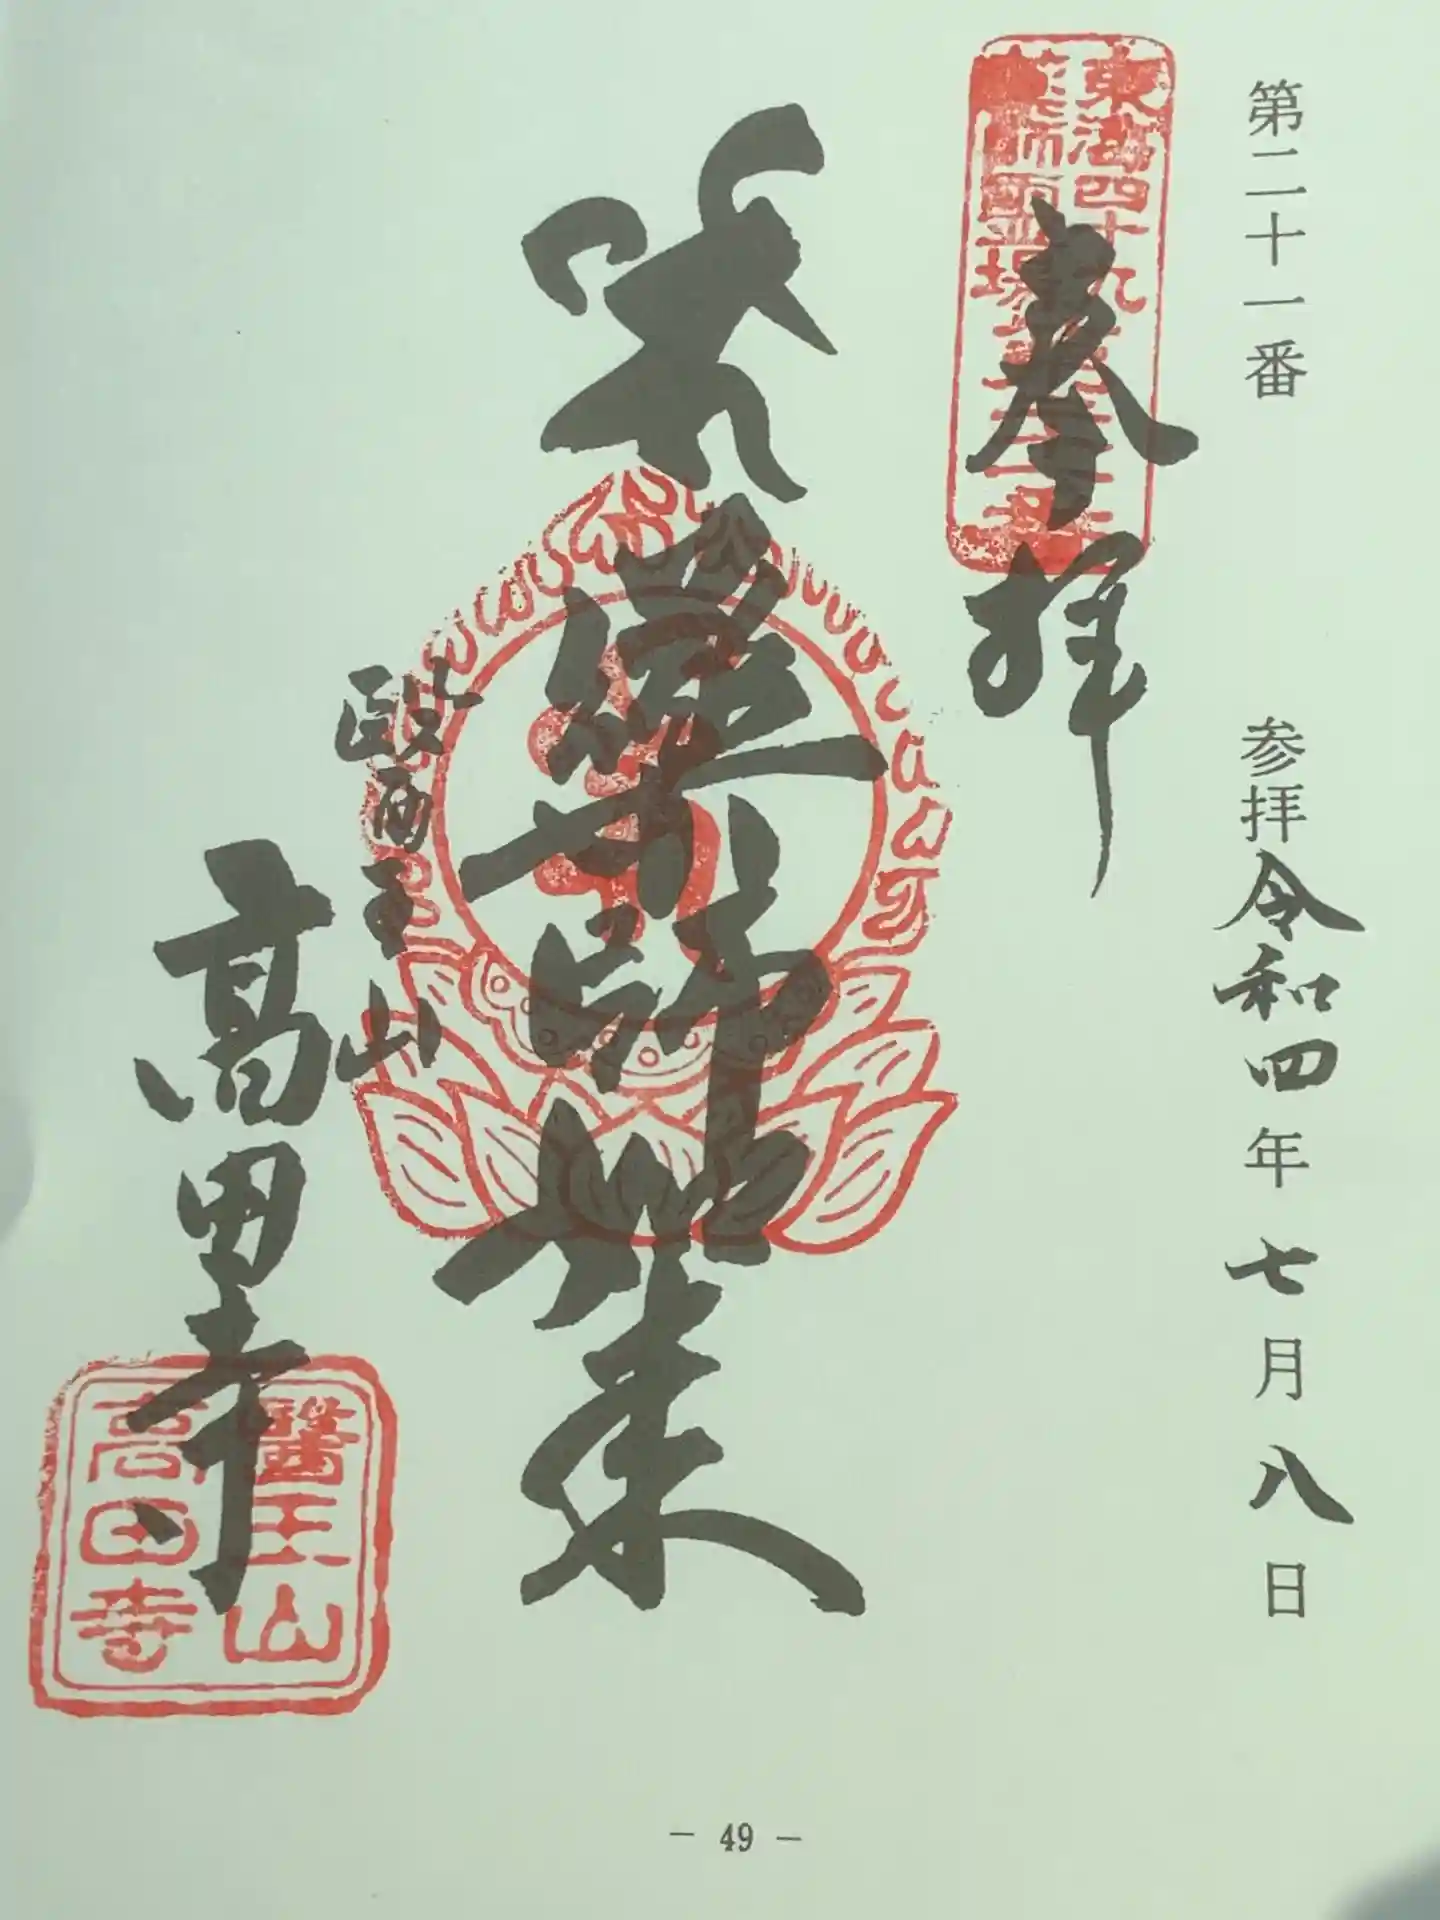 第二十一番
参拝令和四年七月八日
東海四十九
薬師霊場第二十一番
奉拝
薬師如来
医王山
高田寺
醫王山
高田寺
- 49 -